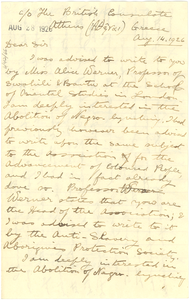 c/o The British Consulate
AUG 28 1926
Athens, Greece
Aug. 14, 1926
Dear Sir:
I was advised to write to you
by Miss Alice Werner, Professor of
Swahili & Bantu at the School
of Oriental Studies in London.
I am deeply interested in the
Abolition of Negro Lynching. I had
previously however been advised
to write upon the same subject
to the Association for the
advancement of Colored People
and I had in fact already
done so. Professor
Werner states that you are
the Head of the Association; &
I was advised to write to it
by the Anti-Slavery and
Aborigines Protection Society.
I am deeply interested in
the Abolition of Negro Lynching